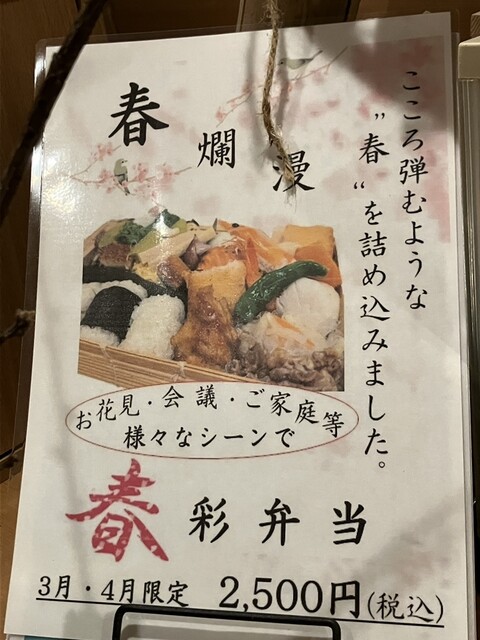 こころ弾むような
〝春〟を詰め込みました。
春爛漫
お花見・会議・ご家庭等
様々なシーンで
春彩弁当
3月・4月限定 2,500円(税込)